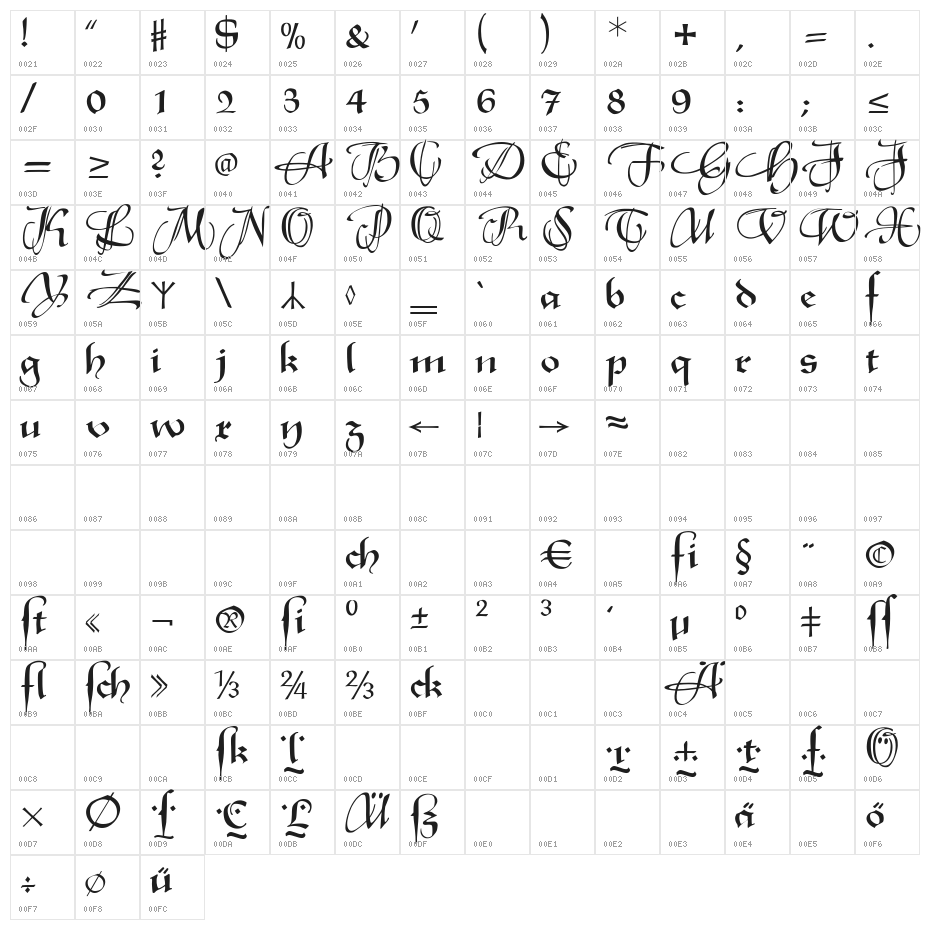 ! " # $ % & ' ( ) * + , = .
0021 0022 0023 0024 0025 0026 0027 0028 0029 002A 002B 002C 002D 002E
/ 0 1 2 3 4 5 6 7 8 9 : ; ≤
002F 0030 0031 0032 0033 0034 0035 0036 0037 0038 0039 003A 003B 003C
= ≥ ? @ A B C D E F G H I J
003D 003E 003F 0040 0041 0042 0043 0044 0045 0046 0047 0048 0049 004A
K L M N O P Q R S T U V W X
004B 004C 004D 004E 004F 0050 0051 0052 0053 0054 0055 0056 0057 0058
Y Z ᛉ \ ᛦ ◊ ‗ ` a b c d e f
0059 005A 005B 005C 005D 005E 005F 0060 0061 0062 0063 0064 0065 0066
g h i j k l m n o p q r s t
0067 0068 0069 006A 006B 006C 006D 006E 006F 0070 0071 0072 0073 0074
u v w x y z ← ¦ → ≈
0075 0076 0077 0078 0079 007A 007B 007C 007D 007E 0082 0083 0084 0085
0086 0087 0088 0089 008A 008B 008C 0091 0092 0093 0094 0095 0096 0097
ch € fi § ¨ ©
0098 0099 009B 009C 009F 00A1 00A2 00A3 00A4 00A5 00A6 00A7 00A8 00A9
ſt « ¬ ® ſi ⁰ ± ² ³ ´ µ º ‡ ſſ
00AA 00AB 00AC 00AE 00AF 00B0 00B1 00B2 00B3 00B4 00B5 00B6 00B7 00B8
fl ſch » ⅓ 2/4 ⅔ ck Ä
00B9 00BA 00BB 00BC 00BD 00BE 00BF 00C0 00C1 00C3 00C4 00C5 00C6 00C7
ſk l r ± t f Ö
00C8 00C9 00CA 00CB 00CC 00CD 00CE 00CF 00D1 00D2 00D3 00D4 00D5 00D6
× Ø ſ Ü ß ä ö
00D7 00D8 00D9 00DA 00DB 00DC 00DF 00E0 00E1 00E2 00E3 00E4 00E5 00F6
÷ ø ü
00F7 00F8 00FC